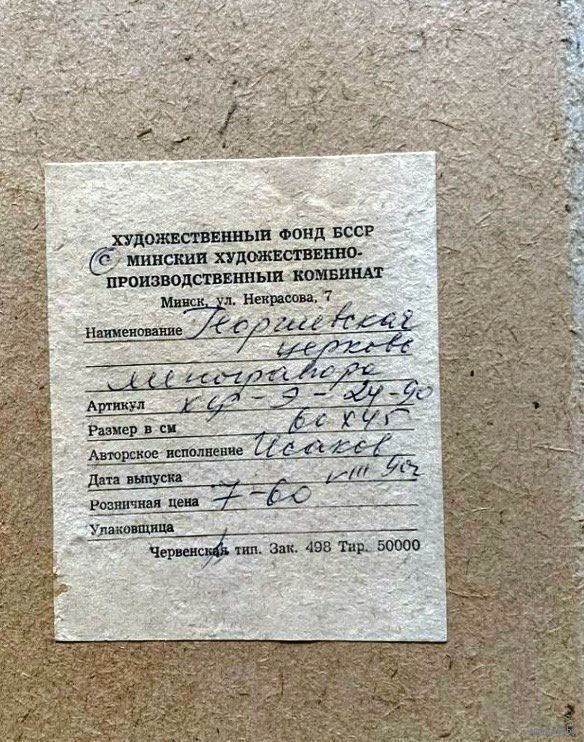 ХУДОЖЕСТВЕННЫЙ ФОНД БССР
МИНСКИЙ ХУДОЖЕСТВЕННО-
ПРОИЗВОДСТВЕННЫЙ КОМБИНАТ
Минск, ул. Некрасова, 7
Наименование Георгиевская
церковь
Артикул ХФ-Э-24-90
Размер в см 60х45
Авторское исполнение Исаков
Дата выпуска VIII 90г
Розничная цена 7-60
Упаковщица
Червенская тип. Зак. 498 Тир. 50000